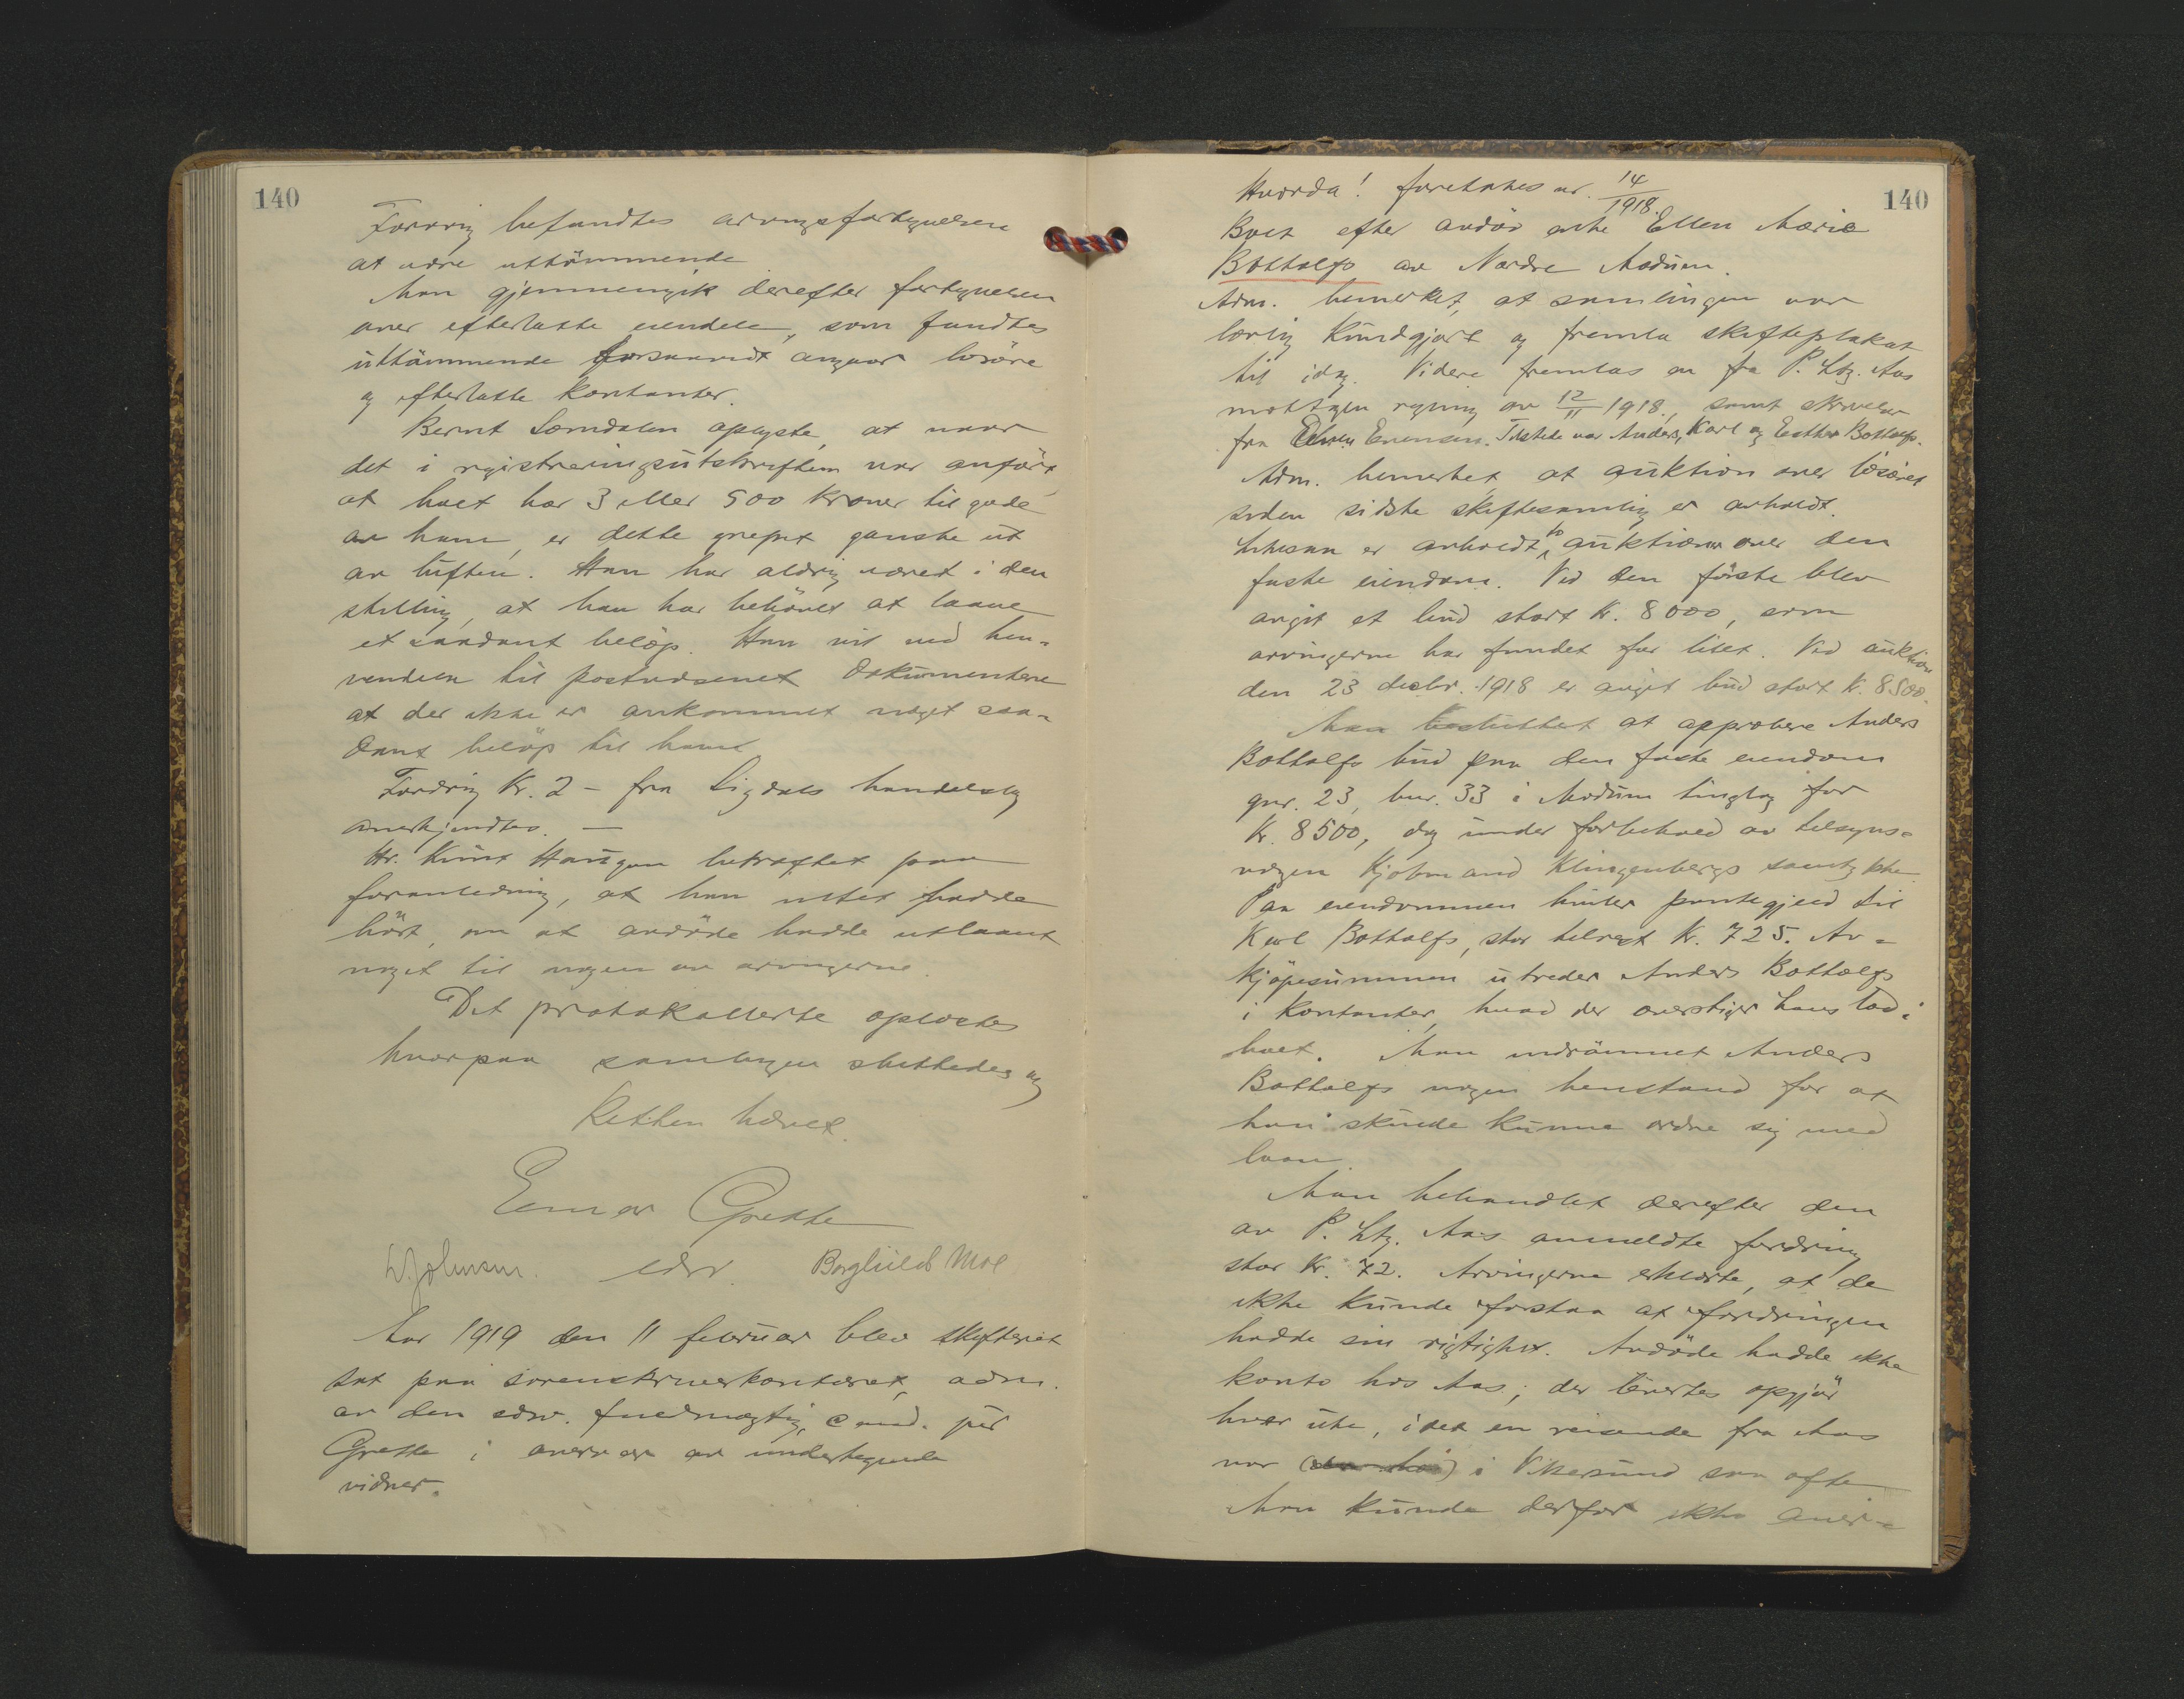 140
Forøvrig befandtes arvingsfortegnelsen
at være uttömmende
Man gjennemgik derefter fortegnelsen
over efterlatte eiendele, som fandtes
uttömmende forsaavidt angaar lösöre
og efterlatte kontanter.
Bernt Sørndalen oplyste, at naar
det i registreringsutskriften var anført,
at boet har 3 eller 500 kroner til gode
av ham, er dette grepet ganske ut
av luften. Han har aldrig været i den
stilling, at han har behövet at laane
et saadant belöp. Han vil ved hen-
vendelse til postvæsenet dokumentere
at der ikke er ankommet noget saa-
dant belöp til ham
Fordring Kr. 2 – fra Sigdals handelslag
anerkjendtes. —
Hr. Knut Haugan bekræftet paa
foranledning, at han intet hadde
hört, om at avdöde hadde utlaant
noget til nogen av arvingerne.
Det protokollerte oplæstes
hvorpaa samlingen sluttedes og
Retten hævet.
Einar Grette
edsv.
Borghild Moe
Aar 1919 den 11 februar blev skifteret
sat paa sorenskriverkontoret, adm.
av den edsv. fuldmægtig, cand. jur
Grette i overvær av undertegnede
vidner.
140
Hvorda! foretokes nr. 14/1918.
Boet efter avdöd enke Ellen Marie
Bottolfs av Nordre Modum.
Adm. bemerket, at samlingen var
lovlig kundgjort og fremla skifteplakat
til idag. Videre fremlas en fra P. Ltz. Aas
mottagen regning av 12/11 1918., samt skrivelse
fra Evensen. Tilstede var Anders, Karl og Esther Bottolfs.
Adm. bemerket at auktion over lösöret
siden sidste skiftesamling er avholdt.
Likesaa er avholdt to auktioner over den
faste eiendom. Ved den förste blev
avgit et bud stort kr. 8000, som
arvingerne har fundet for litet. Ved auktion
den 23 decbr. 1918 er avgit bud stort kr. 8500.
Man besluttet at approbere Anders
Bottolfs bud paa den faste eiendom
gnr. 23, bnr. 33 i Modum tinglag for
Kr. 8500, dog under forbehold av tilsyns-
vægen Kjöbmand Klingenbergs samtykke
Paa eiendommen hviler pantegjeld til
Karl Bottolfs, stor tilrest Kr. 725. Av
kjöpesummen utreder Anders Bottolfs
i kontanter, hvad der overstiger hans lod i
boet. Man indrömmet Anders
Bottolfs nogen henstand for at
han skulde kunne ordne sig med
laan.
Man behandlet derefter den
av P. Ltz. Aas anmeldte fordring
stor kr. 72. Arvingerne erklærte, at de
ikke kunde forstaa at fordringen
hadde sin rigtighet. Avdöde hadde ikke
konto hos Aas; der levertes opgjör
hver uke, idet en reisende fra Aas
var i Vikersund saa ofte
Man kunde derfor ikke aner-